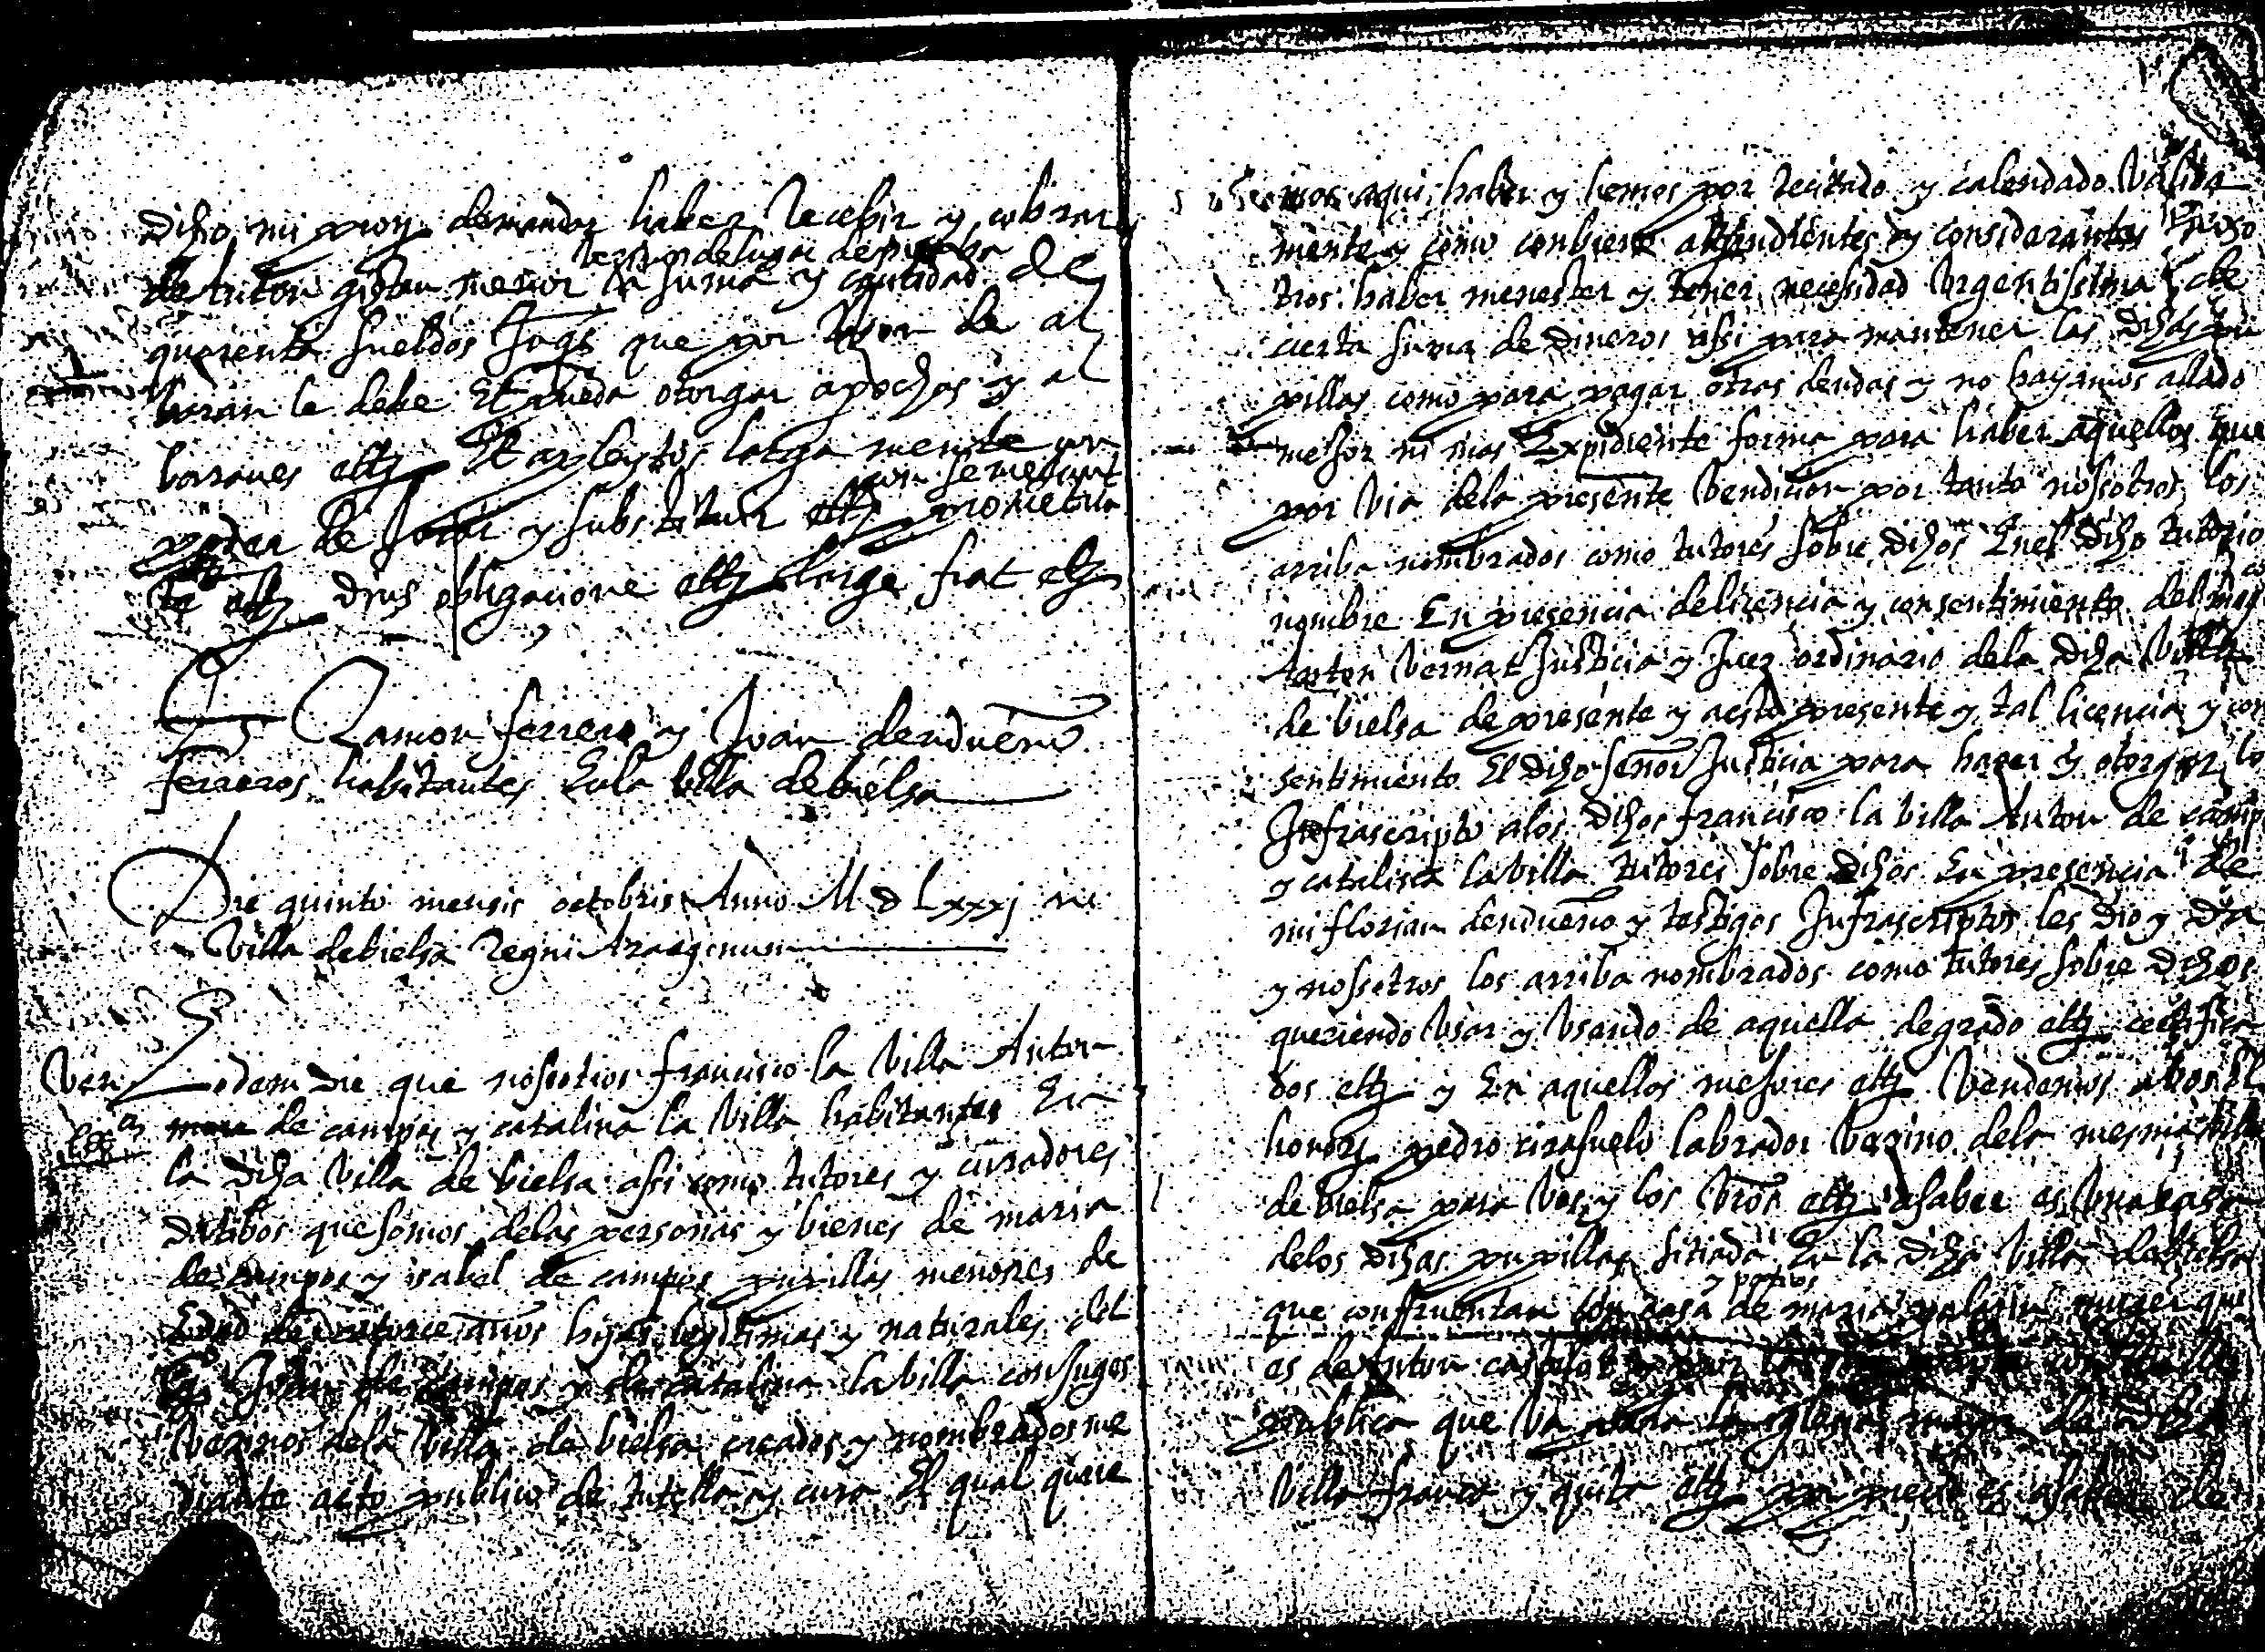 dicho mi procu demandar haber Recebir y cobrar
vezino del lugar de
de Anton menor la suma y cantidad de
quarenta sueldos Jaqs que por Razon de al
baran le debe Et pueda otorgar apochas y al
baranes ettz Et a pleytos larga mente con
con semejant
poder de Jurar y substituir ettz promettia
te ettz dius obligacione ettz large fiat etz
Ts Ramon ferrero y Joan denduenio
ferreros habitantes En la villa de bielsa
Die quinto mensis octobris Anno M D Lxxxj in
Villa de bielsa Regni Aragonum
Eodem die que nosotros francisco la Villa Anton
Ven on
de campos y catalina la Villa habitantes En
la dicha Villa de bielsa assi como tutores y curadores
datibos que somos delas personas y bienes de maria
de campos y isabel de campos pupillas menores de
Edad de catorce años hijas legitimas y naturales del
qo Joan de campos y de catalina la villa conjuges
Vezinos dela Villa de bielsa creados y nombrados me
diante acto publico de tutella y cura El qual quere
mos aqui haber y hemos por recitado y calendado valida
mente y como conbiene attendientes y considerantes
tros haber menester y tener necessidad Urgentissima de
cierta suma de dineros assi para mantener las dichas pu
pillas como para pagar otras deudas y no hayamos allado
mejor ni mas Expidiente forma para haber aquellos que
por Via dela presente Vendicion por tanto nosotros los
arriba nombrados como tutores sobre dichos En el dicho tutorio
nombre En presencia de licencia y consentimiento del magco
Anton Vernat Justicia y Juez ordinario dela dicha Villa
de bielsa de presente y a esto presente y tal licencia y con
sentimiento El dicho señor Justicia para hazer y otorgar lo
Infrascripto a los dichos francisco la villa Anton de camp
y catalina la Villa tutores sobre dichos En presencia de
mi florian denduenio y testigos Infrascriptos les dio y da
y nosotros los arriba nombrados como tutores sobre dichos
queriendo Usar y Usando de aquella de grado ettz certifica
dos ettz y En aquellos mejores ettz Vendemos a bos el
honorz pedro cirajuelo labrador Vezino dela mesma villa
de bielsa para Vos y los Vros ettz a saber es Una casa
delos dichas pupillas sitiada En la dicha Villa de bielsa
y patios
que confruentan con casa de maria palacin muger que
es de Anton castelo
publica que Va para la yglesia mayor de la dicha
Villa franca y quita ettz por precio es a saber de